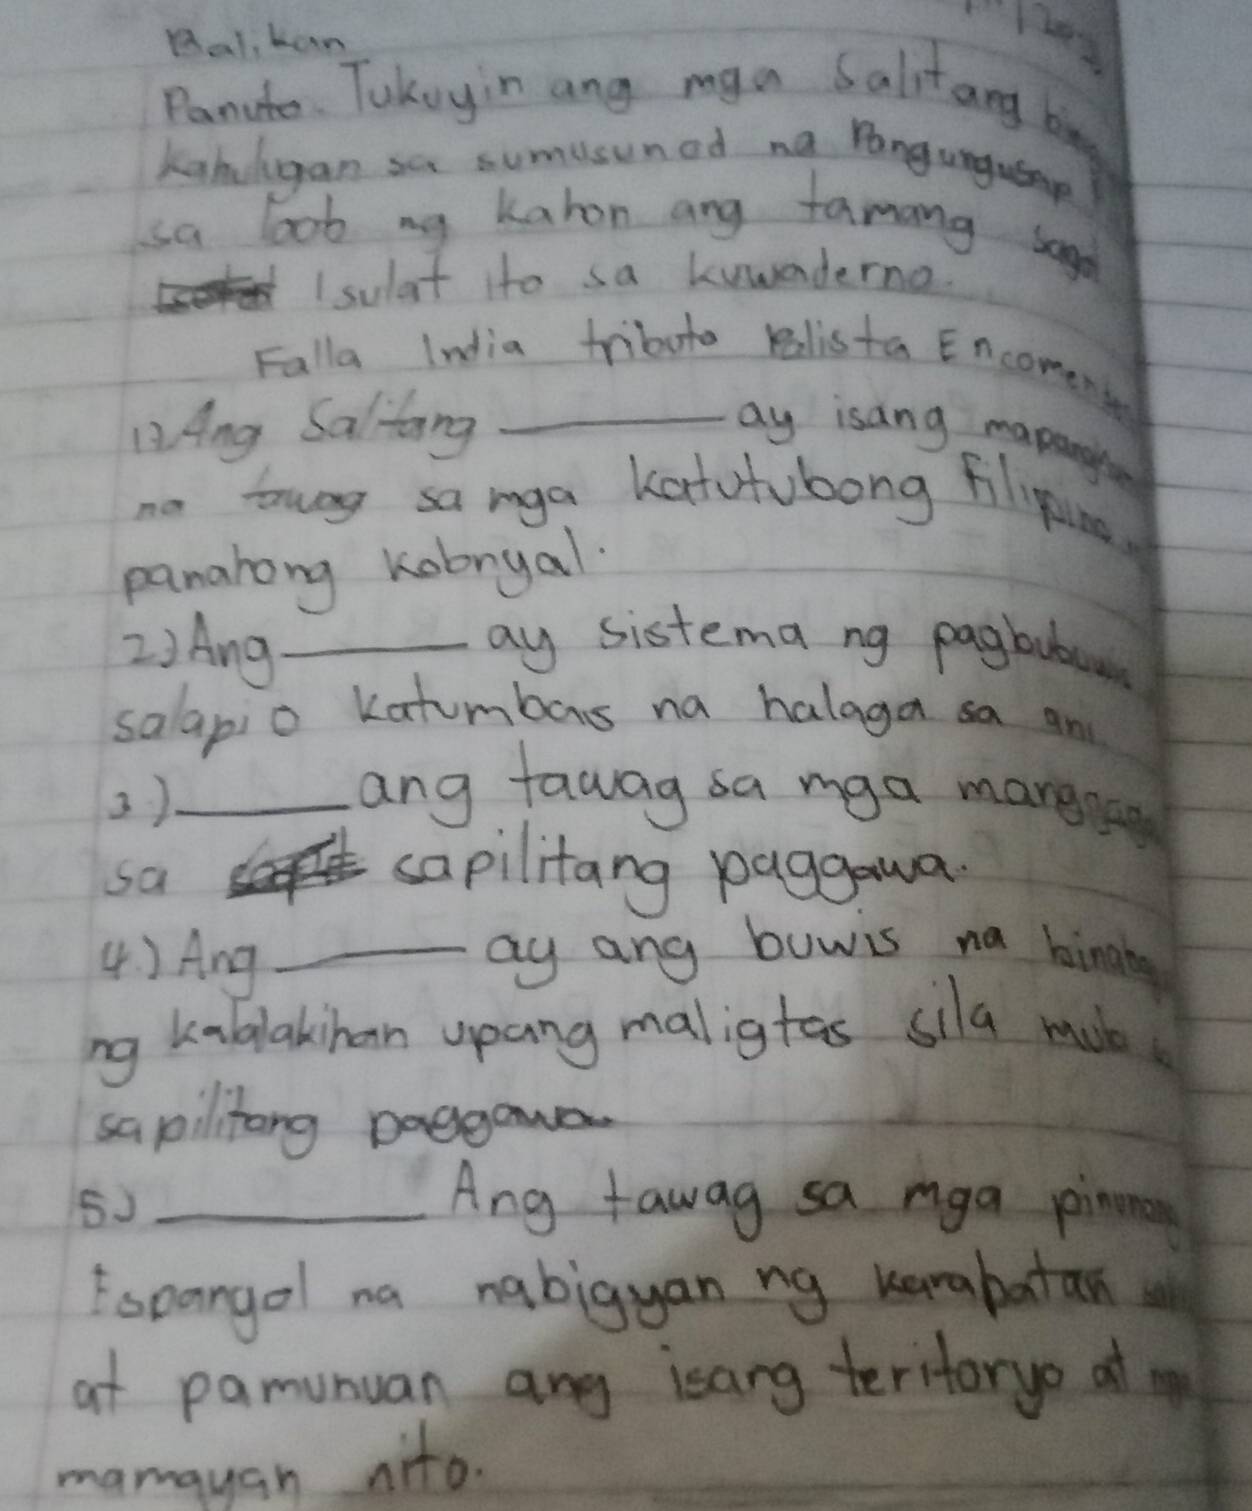 Balikan
Panuto. Tukuyin ang mga Salitang
Kahulugan sa sumusunod na Pangungusap
sa loob ng kahon ang tamang sagot
Isulat ito sa kuwaderno.
Falla India tributo Polista
1) Ang Salitang ______ ay isang
na tawag sa mga katutubong Filipino
panahong kolonyal.
2) Ang ______ ay sistema ng
salapi o katumbas na halaga sa ani
3.) ______ ang tawag sa mga
sa sapilitang paggawa.
4.) Ang ______ ay ang buwis na
ng kalalakihan upang maligtas sila mula
sapilitang paggawa
5) ______ Ang tawag sa mga pinunong
Espangol na nabigyan ng karapatan
at pamunuan ang isang teritoryo at mga
mamayan nito.